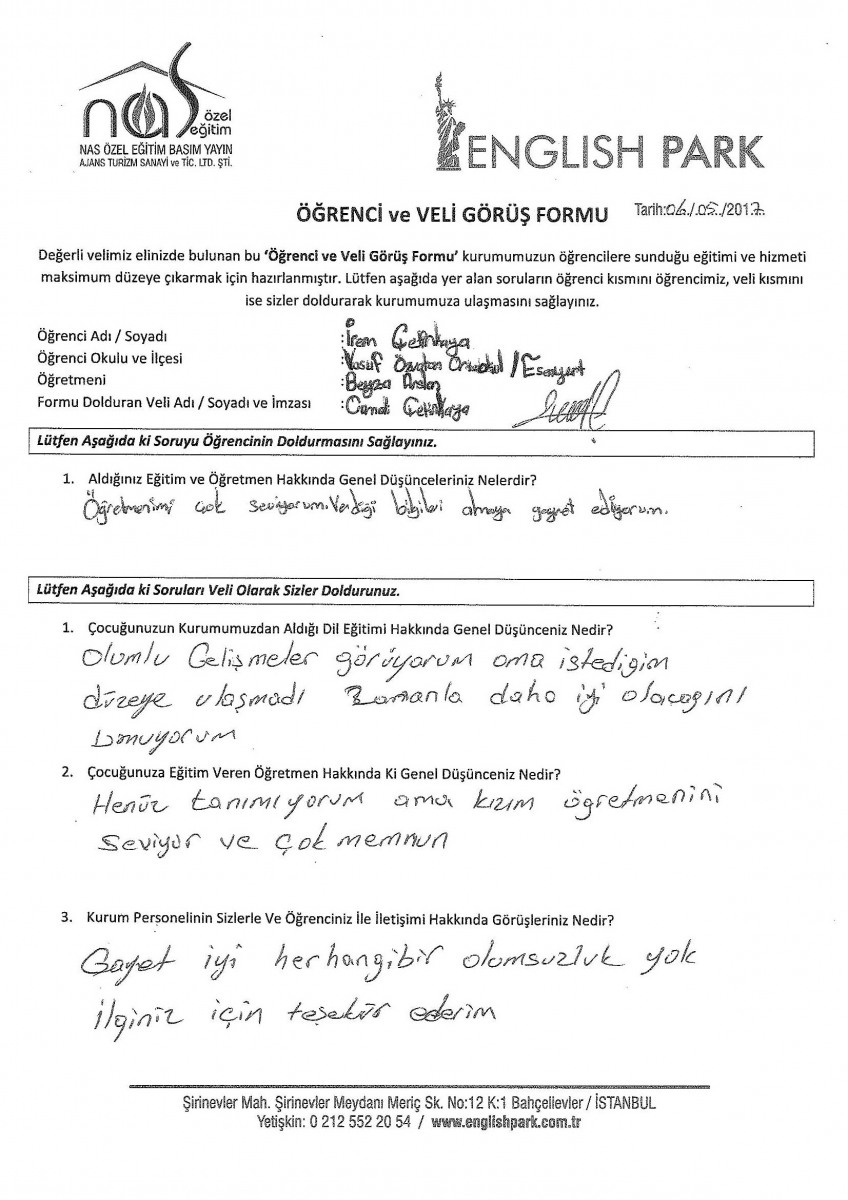 nas özel
eğitim
NAS ÖZEL EĞİTİM BASIM YAYIN
AJANS TURİZM SANAYİ ve TİC. LTD. ŞTİ.
ENGLISH PARK
ÖĞRENCİ ve VELİ GÖRÜŞ FORMU
Tarih:06./.05./2017.
Değerli velimiz elinizde bulunan bu 'Öğrenci ve Veli Görüş Formu' kurumumuzun öğrencilere sunduğu eğitimi ve hizmeti
maksimum düzeye çıkarmak için hazırlanmıştır. Lütfen aşağıda yer alan soruların öğrenci kısmını öğrencimiz, veli kısmını
ise sizler doldurarak kurumumuza ulaşmasını sağlayınız.
Öğrenci Adı / Soyadı :İrem Çetinkaya
Öğrenci Okulu ve İlçesi :Yusuf Özvatan Ortaokul / Esenyurt
Öğretmeni :Beyza Arslan
Formu Dolduran Veli Adı / Soyadı ve İmzası : Çetinkaya
Lütfen Aşağıda ki Soruyu Öğrencinin Doldurmasını Sağlayınız.
1. Aldığınız Eğitim ve Öğretmen Hakkında Genel Düşünceleriniz Nelerdir?
Öğretmenimi çok seviyorum.Verdiği bilgileri almaya gayret ediyorum.
Lütfen Aşağıda ki Soruları Veli Olarak Sizler Doldurunuz.
1. Çocuğunuzun Kurumumuzdan Aldığı Dil Eğitimi Hakkında Genel Düşünceniz Nedir?
Olumlu Gelişmeler görüyorum ama istedigim
düzeye ulaşmadı Zamanla daha iyi olacagını
umuyorum
2. Çocuğunuza Eğitim Veren Öğretmen Hakkında Ki Genel Düşünceniz Nedir?
Henüz tanımıyorum ama kızım ögretmenini
seviyor ve çok memnun
3. Kurum Personelinin Sizlerle Ve Öğrenciniz İle İletişimi Hakkında Görüşleriniz Nedir?
Gayet iyi herhangibir olumsuzluk yok
ilginiz için teşekür ederim
Şirinevler Mah. Şirinevler Meydanı Meriç Sk. No:12 K:1 Bahçelievler / İSTANBUL
Yetişkin: 0 212 552 20 54 / www.englishpark.com.tr